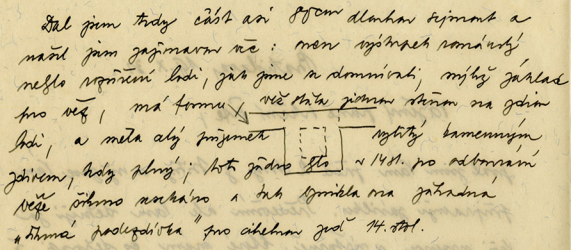 Dal jsem tedy část asi 80cm dlouhou sejmout a
našel jsem zajímavou věc: onen výstupek románský
nebo rozšíření lodi, jak jsme se domnívali, mýlný základ
pro věž, má formu věž stála jednou stěnou na zdivu
lodi, a měla celý průjezdek vylitý kamenným
zdivem, tedy plný; toto zdivo šlo v 14st. po odbourání
věže šikmo usekáno a tak vznikla ona záhadná
„šikmá podezdívka" pro cihelnou zeď 14. stol.